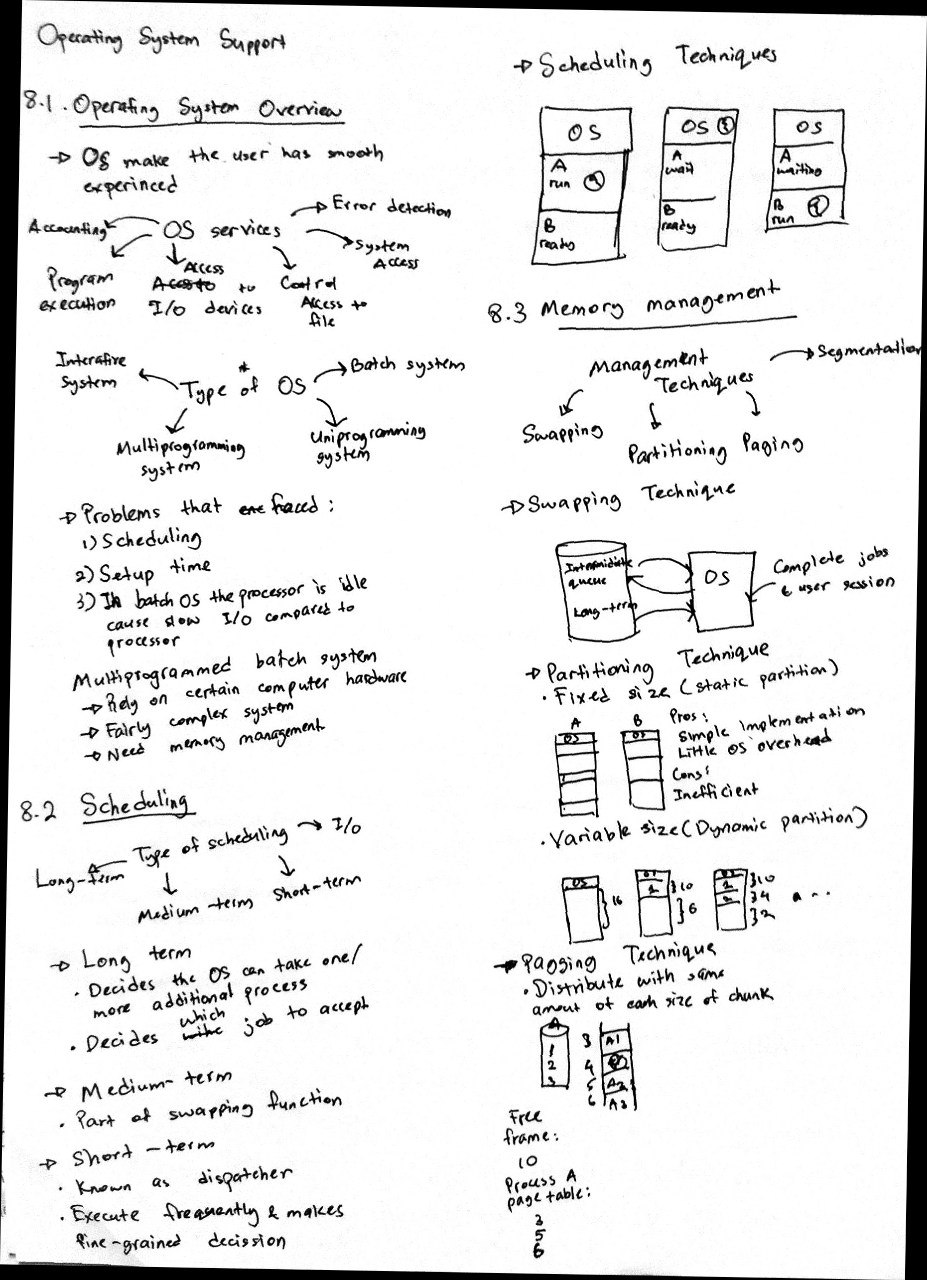 Operating System Support
8.1. Operating System Overview
→ OS make the user has smooth
experinced
OS services
Accounting
Program
execution
Access
to
I/O devices
Control
Access to
file
System
Access
Error detection
Type of OS
*
Interafive
System
Multiprogramming
system
Uniprogramming
system
Batch system
→ Problems that faced:
1) Scheduling
2) Setup time
3) In batch OS the processor is idle
cause slow I/O compared to
processor
Multiprogrammed batch system
→ Rely on certain computer hardware
→ Fairly complex system
→ Need memory management
8.2 Scheduling
Type of scheduling
Long-term
Medium-term
Short-term
I/O
→ Long term
• Decides the OS can take one/
more additional process
• Decides which job to accept
→ Medium-term
• Part of swapping function
→ Short-term
• Known as dispatcher
• Execute frequently & makes
fine-grained decission
→ Scheduling Techniques
OS
A
run
B
ready
OS
A
wait
B
ready
OS
A
waiting
B
run
8.3 Memory management
Management
Techniques
Swapping
Partitioning
Paging
Segmentation
→ Swapping Technique
Intromidiate
queue
Long-term
OS
Complete jobs
& user session
→ Partitioning Technique
• Fixed size (static partition)
A
OS
B
OS
Pros:
Simple implementation
Little OS overhead
Cons:
Inefficient
• Variable size (Dynamic partition)
OS
16
OS
1
10
6
OS
1
2
10
4
2
→ Pagging Technique
• Distribute with same
amout of each size of chunk
A
1
2
3
3 A1
4
5 A2
6 A3
Free
frame:
10
Process A
page table:
3
5
6